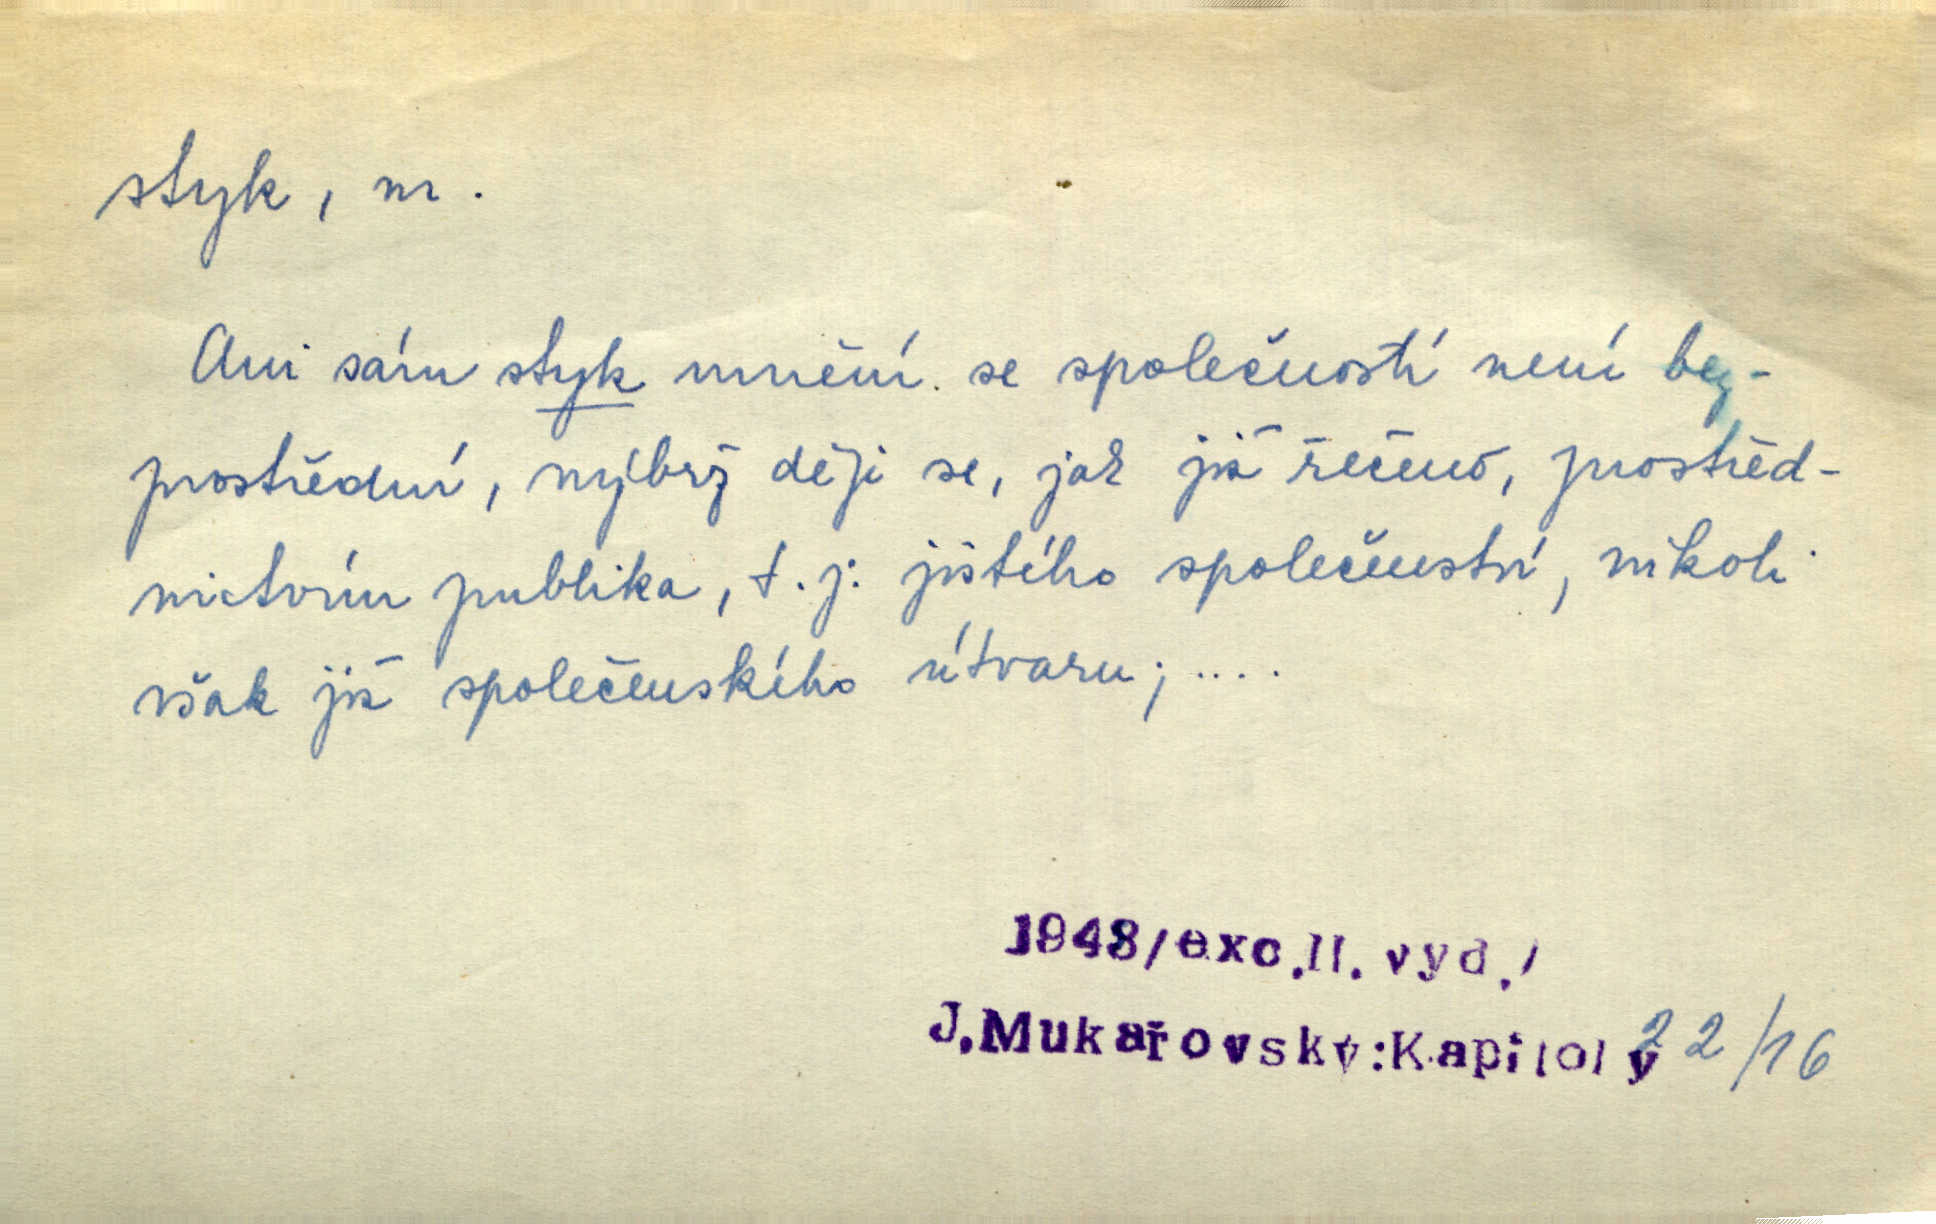 styk, m.
Ani sám styk umění se společností není bez-
prostřední, nýbrž děje se, jak již řečeno, prostřed-
nictvím publika, t.j. jistého společenství, nikoli
však již společenského útvaru; ....
1948/exc.II.vyd./
J.Mukařovský:Kapitoly 22/16